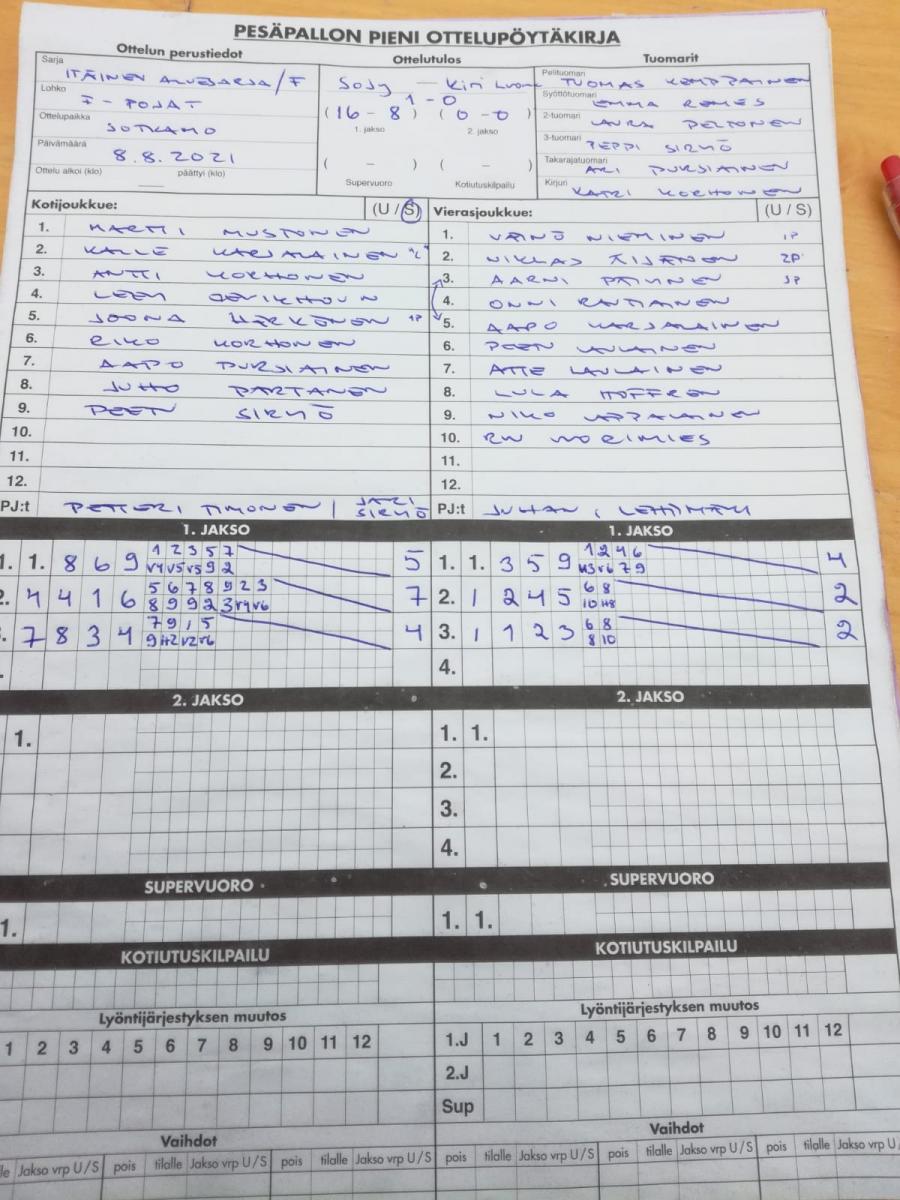 PESÄPALLON PIENI OTTELUPÖYTÄKIRJA
Ottelun perustiedot
Sarja
ITÄINEN ALUESARJA/F
Lohko
F - POJAT
Ottelupaikka
SOTKAMO
Päivämäärä
8.8.2021
Ottelu alkoi (klo) päättyi (klo)
Ottelutulos
SoJy – Kiri
1-0
(16 - 8) (0 - 0)
1. jakso 2. jakso
( – ) ( – )
Supervuoro Kotiutuskilpailu
Tuomarit
Pelituomari TUOMAS KEMPPAINEN
Syöttötuomari EMMA ROMES
2-tuomari LAURA PELTONEN
3-tuomari PEPPI SIRVIÖ
Takarajatuomari ARI PURSIAINEN
Kirjuri KATRI KORHONEN
Kotijoukkue: (U / S)
1. MARTTI MUSTONEN
2. KALLE KARJALAINEN "L"
3. ANTTI KORHONEN
4. LEEVI
5. JOONA HÄRKÖNEN 1P
6. RIKO KORHONEN
7. AAPO PURSIAINEN
8. JUHO PARTANEN
9. PEETU SIRVIÖ
10.
11.
12.
PJ:t PETTERI TIMONEN / JARI SIRVIÖ
Vierasjoukkue: (U / S)
1. VÄINÖ NIEMINEN 1P
2. NIKLAS ÄIJÄNEN 2P
3. AARNI 3P
4. ONNI RAUTIAINEN
5. AAPO KARJALAINEN
6. PEETU LAULAINEN
7. ATTE LAULAINEN
8. HOFFREN
9. NIKO LAPPALAINEN
10. VUORIMIES
11.
12.
PJ:t JUHANI LEHTIMÄKI
1. JAKSO
1. 1. 8 6 9 1 2 3 5 7 5
v4 v5 v5 9 2
2. 4 4 1 6 5 6 7 8 9 2 3 7
8 9 9 2 3 v4 v6
7 8 3 4 7 9 1 5 4
2. JAKSO
1.
SUPERVUORO
1.
KOTIUTUSKILPAILU
Lyöntijärjestyksen muutos
1 2 3 4 5 6 7 8 9 10 11 12
Vaihdot
Jakso vrp U / S pois tilalle Jakso vrp U / S pois tilalle Jakso vrp U / S
1. JAKSO
1. 1. 3 5 9 1 2 4 6 4
7 9
2. 1 2 4 5 6 8 2
3. 1 1 2 3 6 8 2
8 10
4.
2. JAKSO
1. 1.
2.
3.
4.
SUPERVUORO
1. 1.
KOTIUTUSKILPAILU
Lyöntijärjestyksen muutos
1.J 1 2 3 4 5 6 7 8 9 10 11 12
2.J
Sup
Vaihdot
pois tilalle Jakso vrp U / S pois tilalle Jakso vrp U / S pois tilalle Jakso vrp U /